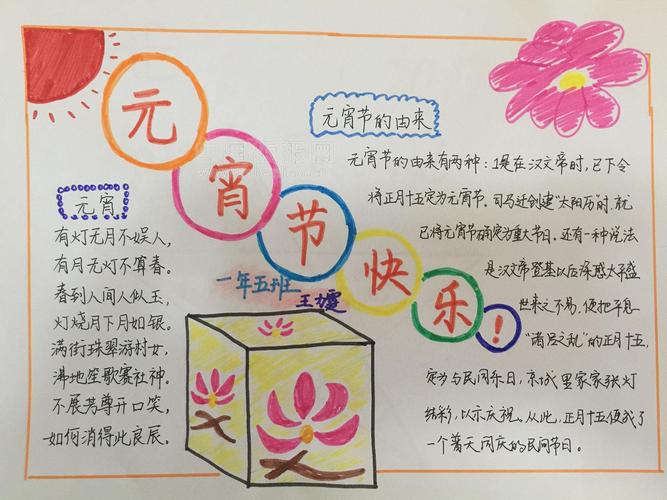 元宵节快乐！
元宵节的由来
元宵节的由来有两种：1是在汉文帝时，已下令
将正月十五定为元宵节。司马迁创建"太阳历"时，就
已将元宵节确定为重大节日。还有一种说法
是汉文帝登基以后深感太平盛
世来之不易，便把平息
"诸吕之乱"的正月十五，
定为与民同乐日，京城里家家张灯
结彩，以示庆祝。从此，正月十五便成了
一个普天同庆的民间节日。
元宵
有灯无月不娱人，
有月无灯不算春。
春到人间人似玉，
灯烧月下月如银。
满街珠翠游村女，
沸地笙歌赛社神。
不展芳尊开口笑，
如何消得此良辰。
一年五班
王